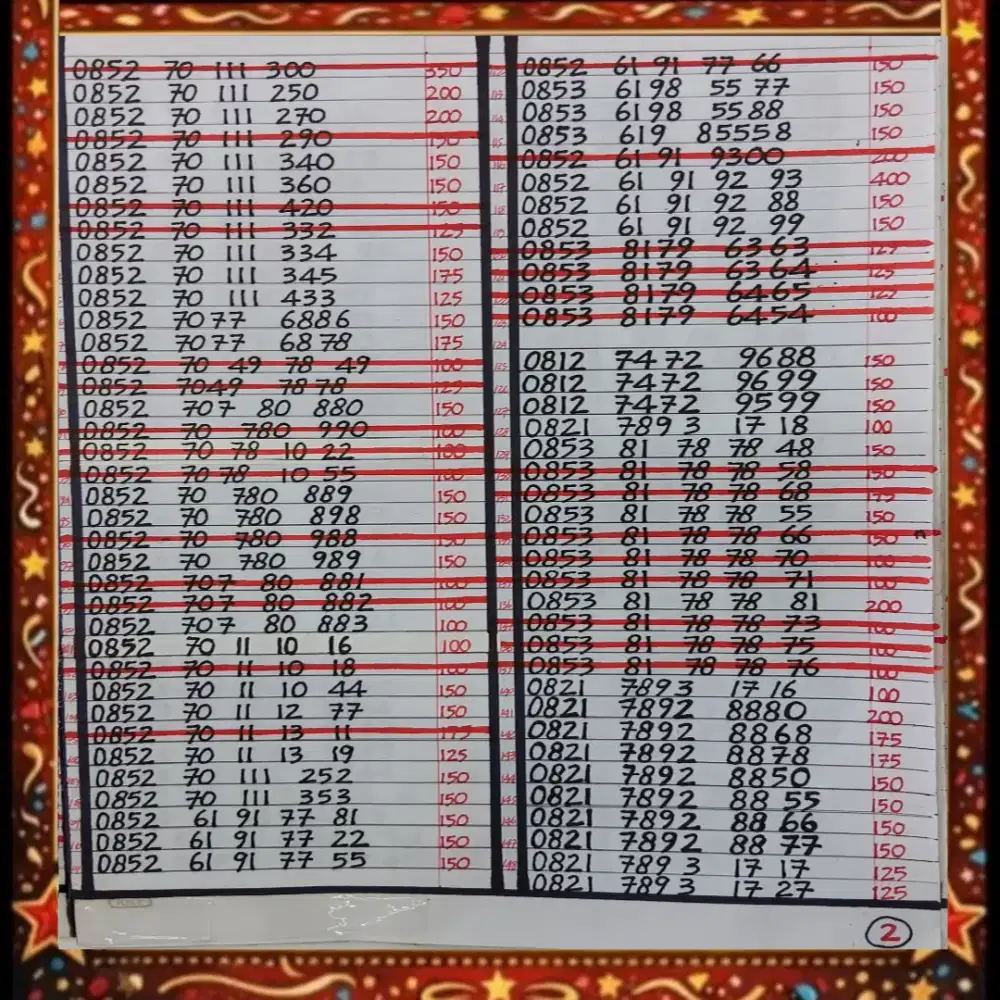 0852 70 111 300 350
0852 70 111 250 200
0852 70 111 270 200
0852 70 111 290 150
0852 70 111 340 150
0852 70 111 360 150
0852 70 111 420 150
0852 70 111 332 125
0852 70 111 334 150
0852 70 111 345 175
0852 70 111 433 125
0852 7077 6886 150
0852 7077 6878 175
0852 70 49 78 49 100
0852 7049 7878 125
0852 707 80 880 150
0852 70 780 990 100
0852 70 78 10 22 100
0852 7078 10 55 100
0852 70 780 889 150
0852 70 780 898 150
0852 70 780 988 150
0852 70 780 989 150
0852 707 80 881 100
0852 707 80 882 100
0852 707 80 883 100
0852 70 11 10 16 100
0852 70 11 10 18 100
0852 70 11 10 44 150
0852 70 11 12 77 150
0852 70 11 13 11 175
0852 70 11 13 19 125
0852 70 111 252 150
0852 70 111 353 150
0852 61 91 77 81 150
0852 61 91 77 22 150
0852 61 91 77 55 150
0852 61 91 77 66 150
0853 6198 55 77 150
0853 6198 5588 150
0853 619 85558 150
0852 61 91 9300 200
0852 61 91 92 93 400
0852 61 91 92 88 150
0852 61 91 92 99 150
0853 8179 6363 125
0853 8179 6364 125
0853 8179 6465 125
0853 8179 6454 100
0812 7472 9688 150
0812 7472 9699 150
0812 7472 9599 150
0821 7893 17 18 100
0853 81 78 78 48 150
0853 81 78 78 58 150
0853 81 78 78 68 175
0853 81 78 78 55 150
0853 81 78 78 66 150
0853 81 78 78 70 100
0853 81 78 78 71 100
0853 81 78 78 81 200
0853 81 78 78 73 100
0853 81 78 78 75 100
0853 81 78 78 76 100
0821 7893 17 16 100
0821 7892 8880 200
0821 7892 8868 175
0821 7892 8878 175
0821 7892 8850 150
0821 7892 88 55 150
0821 7892 88 66 150
0821 7892 88 77 150
0821 7893 17 17 125
0821 7893 17 27 125
2